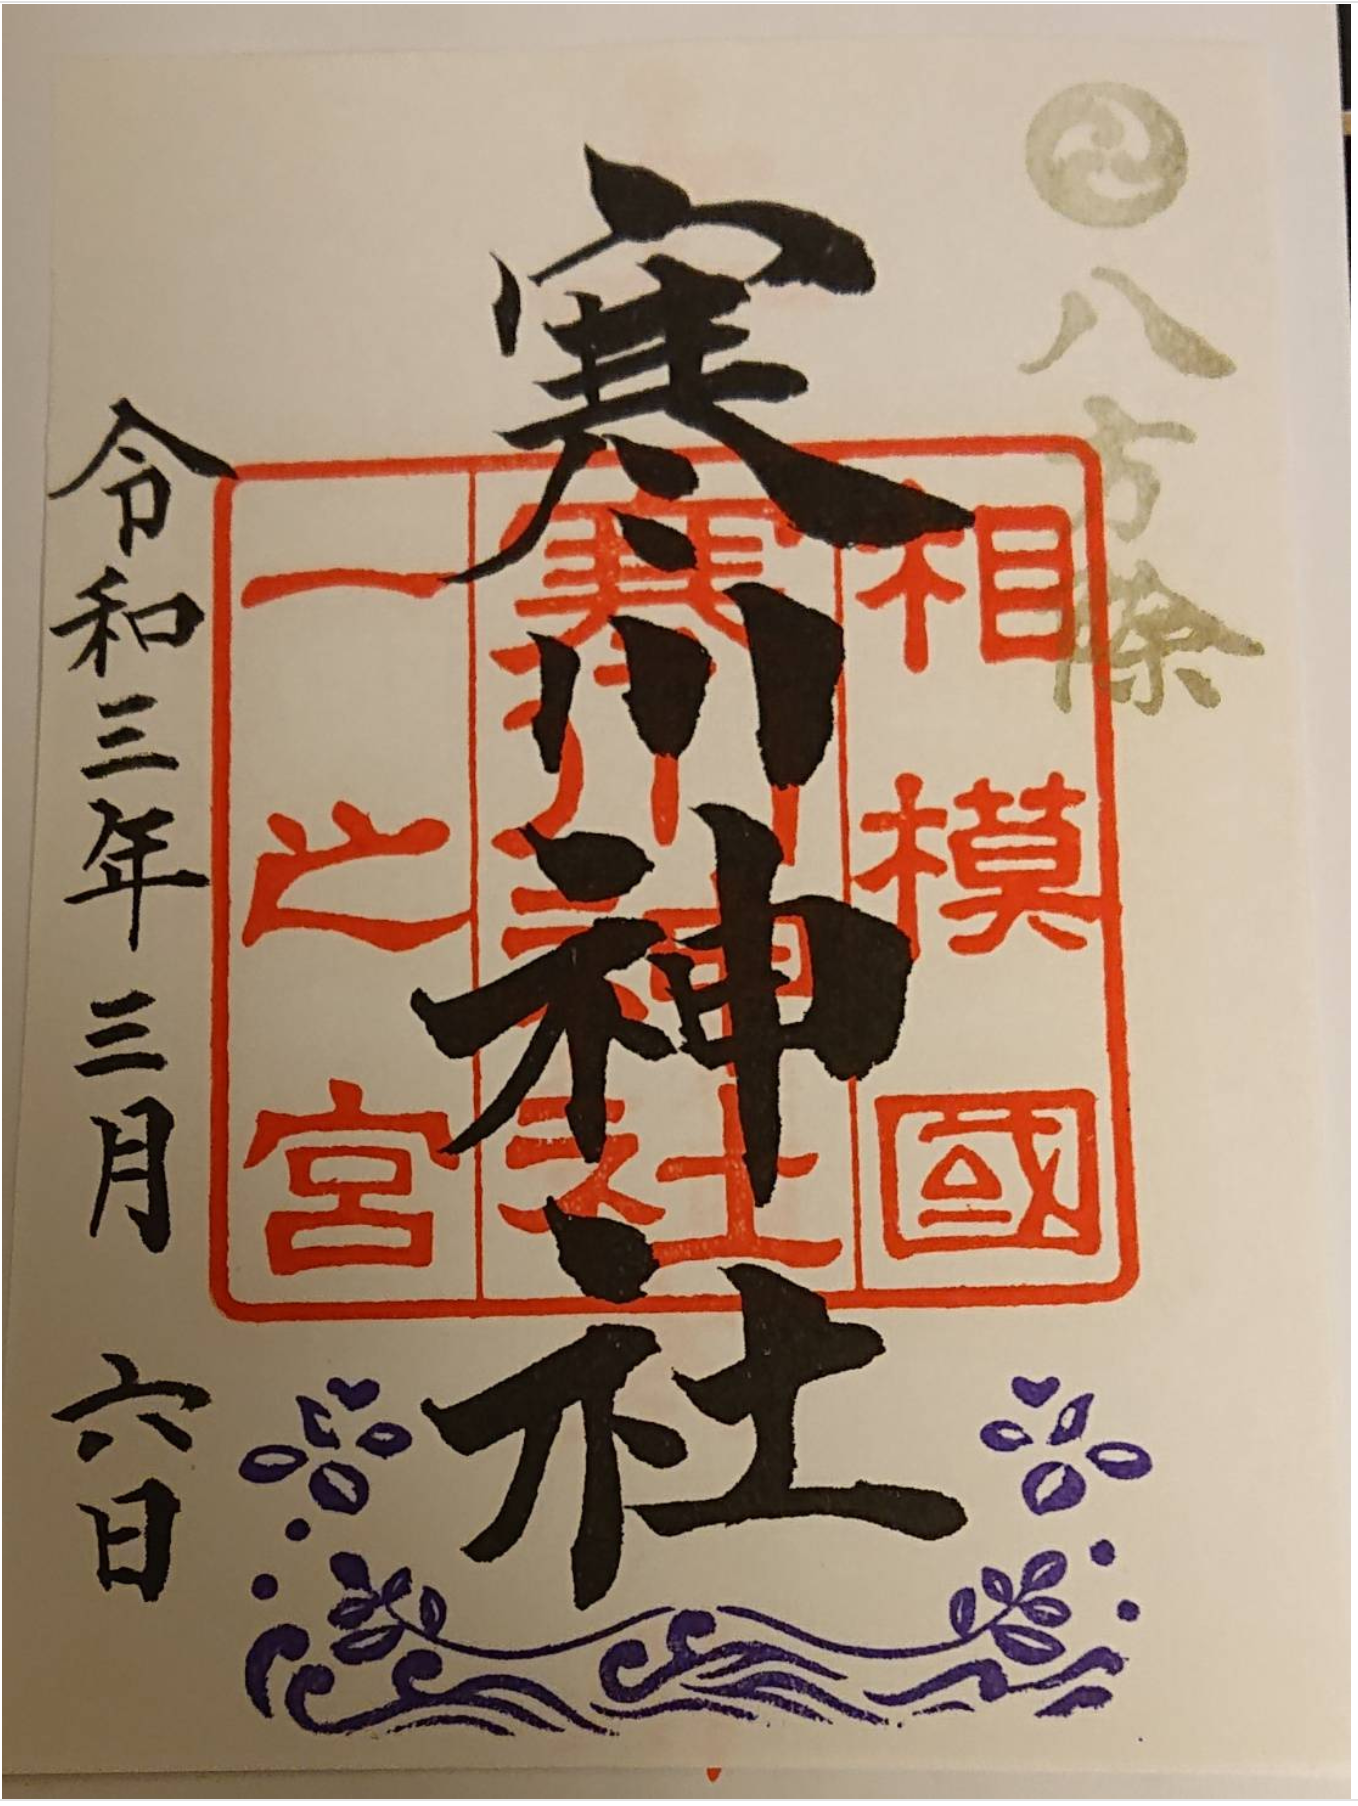 八方除
寒川神社
相模國
寒川神社
一之宮
令和三年三月六日